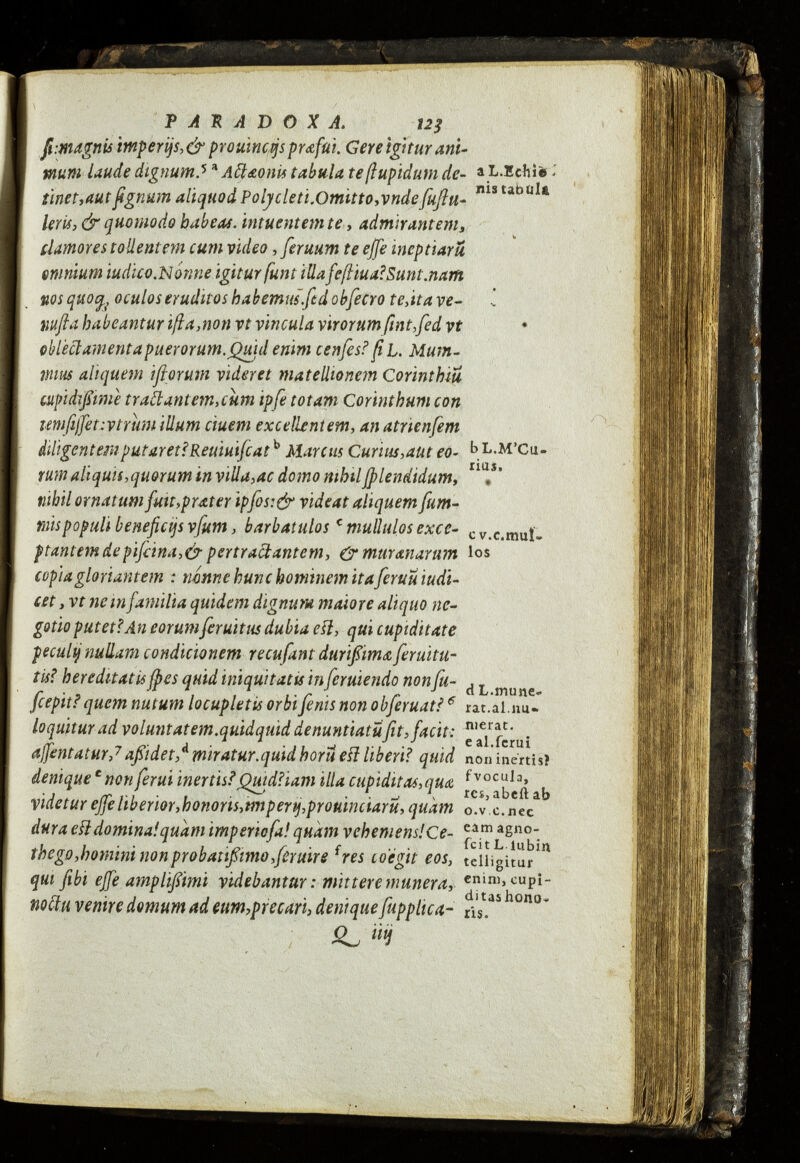 PARADOXA. 123
ſi:magnis imperijs,& prouincijs præfui. Gere igitur ani-
mum laude dignum.⁵ ᵃ Actæonis tabula te ſtupidum de-
tinet,aut ſignum aliquod Polycleti.Omitto,vnde ſuſtu-
leris, & quomodo habeas. intuentem te, admirantem,
clamores tollentem cum video, ſeruum te eſſe ineptiarū
omnium iudico.Nónne igitur ſunt illa feſtiua?Sunt.nam
nos quoq; oculos eruditos habemus.ſed obſecro te,ita ve-
nuſta habeantur iſta,non vt vincula virorum ſint,ſed vt
oblectamenta puerorum.Quid enim cenſes? ſi L. Mum-
mius aliquem iſtorum videret matellionem Corinthiū
cupidiſſimè tractantem,cùm ipſe totam Corinthum con
temſiſſet:vtrùm illum ciuem excellentem, an atrienſem
diligentem putaret?Reuiuiſcat ᵇ Marcus Curius,aut eo-
rum aliquis,quorum in villa,ac domo nihil ſplendidum,
nihil ornatum fuit,præter ipſos:& videat aliquem ſum-
mis populi beneficijs vſum, barbatulos ᶜ mullulos exce-
ptantem de piſcina,& pertractantem, & murænarum
copia gloriantem : nónne hunc hominem ita ſeruū iudi-
cet, vt ne in familia quidem dignum maiore aliquo ne-
gotio putet?An eorum ſeruitus dubia eſt, qui cupiditate
peculij nullam condicionem recuſant duriſſimæ ſeruitu-
tis? hereditatis ſpes quid iniquitatis in ſeruiendo non ſu-
ſcepit? quem nutum locupletis orbi ſenis non obſeruat? ⁶
loquitur ad voluntatem.quidquid denuntiatū ſit, facit:
aſſentatur,⁷ aſſidet,ᵈ miratur.quid horū eſt liberi? quid
denique ᵉ non ſerui inertis?Quid?iam illa cupiditas,quæ
videtur eſſe liberior,honoris,imperij,prouinciarū, quàm
dura eſt domina!quàm imperioſa! quàm vehemens!Ce-
thego,homini non probatiſſimo,ſeruire ᶠres coëgit eos,
qui ſibi eſſe ampliſſimi videbantur : mittere munera,
noctu venire domum ad eum,precari, denique ſupplica-
Q iiij
a L.Echiō.
nis tabula
b L.M'Cu-
rius.
c v.c.mul-
los
d L.mune-
rat.al.nu-
merat.
e al.ſerui
non inertis?
f vocula,
res, abeſt ab
o.v.c.nec
eam agno-
ſcit L.lubin
telligitur
enim, cupi-
ditas hono-
ris.